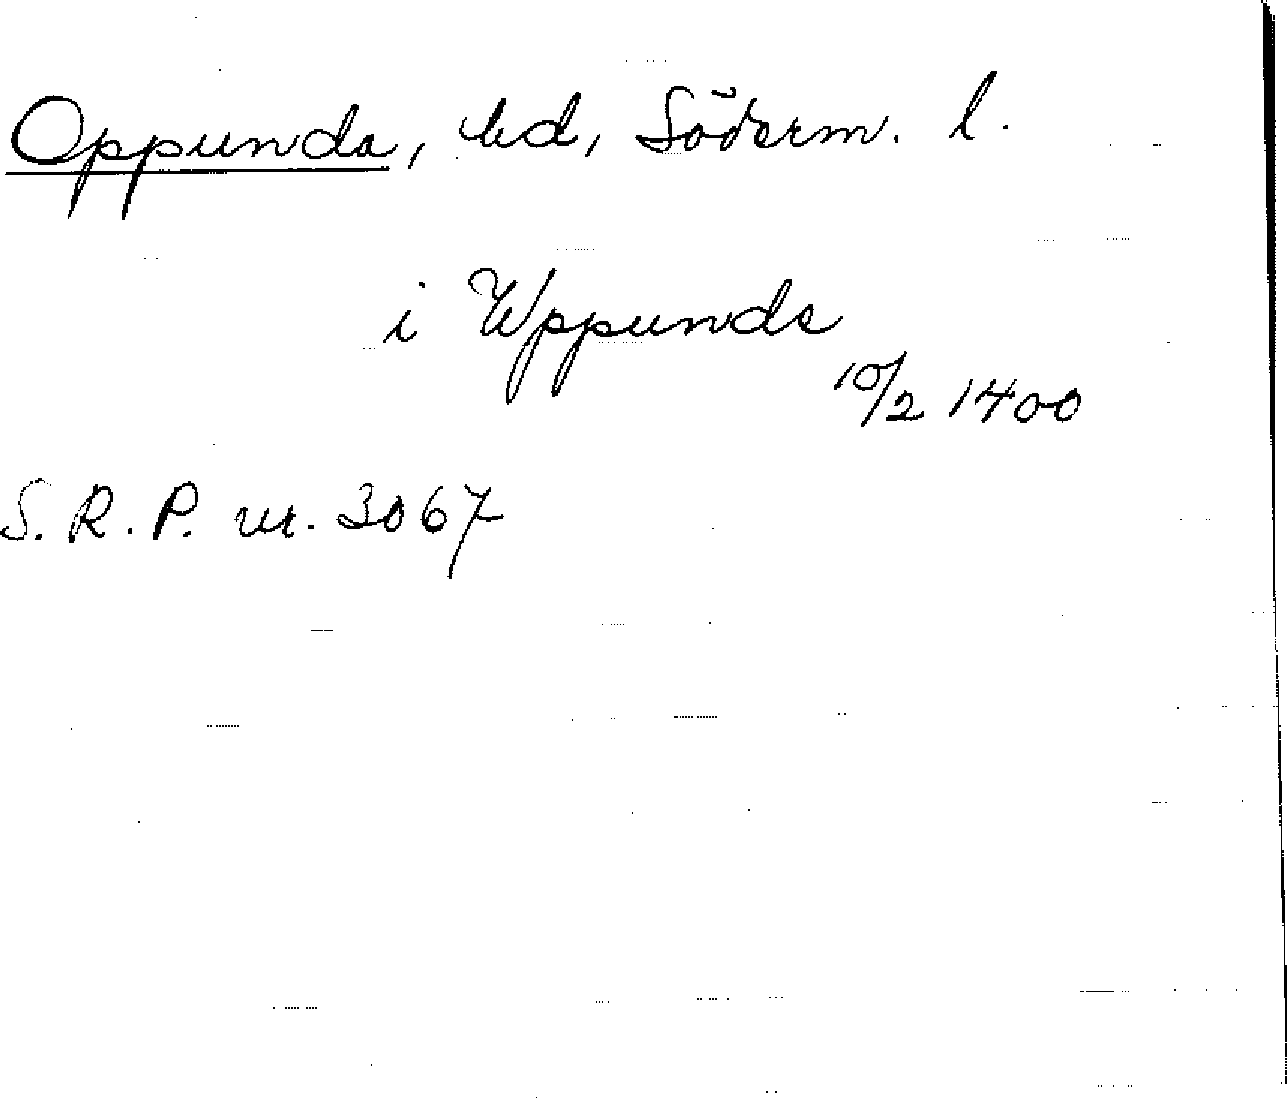 Oppunda, hd, Söderm. l.
i Wppunda
10/2 1400
S. R. P. nr. 3067